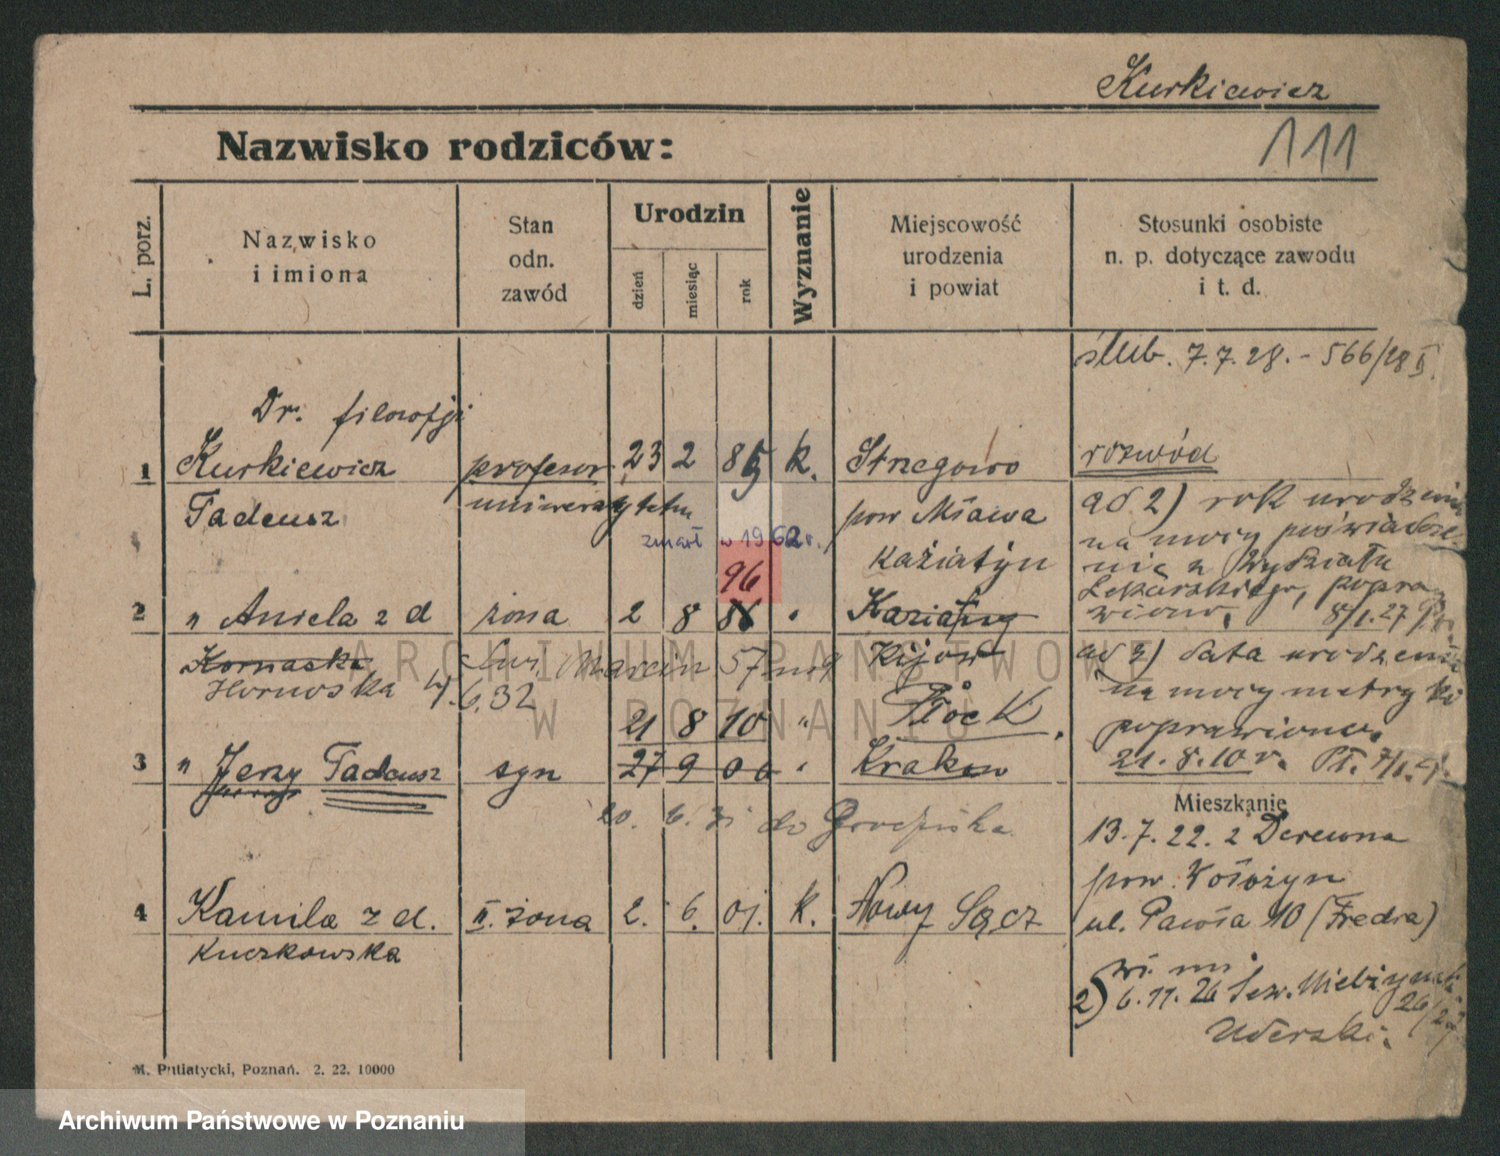 Kurkiewicz
Nazwisko rodziców:
111
L. porz.
Nazwisko
i imiona
Stan
odn.
zawód
Urodzin
dzień
miesiąc
rok
Wyznanie
Miejscowość
urodzenia
i powiat
Stosunki osobiste
n. p. dotyczące zawodu
i t. d.
ślub. 7.7.28. - 566/28
Dr. filozofji
1 Kurkiewicz profesor 23 2 85 k. Strzegowo rozwód
Tadeusz uniwersytetu pow Mława
zmarł w 1962 r.
ad 2) rok urodzenia
na mocy poświadcze
nia z Wydziału
Lekarskiego, popra
wiono. 8/1.27
Kaziatyn
96
2 " Aniela z d żona 2 8 86 " Kaziatyn
Kornaska Św. Marcin 57 Kijów
Hornoska 6.32
ad 3) data urodzenia
na mocy metryki
poprawiono.
21.8.10 r.
21 8 10 " Płock
3 " Jerzy Tadeusz syn 27 9 " Krakow
20. 6. do
Mieszkanie
13.7.22. z Derewna
pow. Wołożyn
ul. Pawła 10 (Fredra)
4 Kamila z d. II. żona 2. 6. 01. k. Nowy Sącz
Kuczkowska
2) 6.11.26
M. Putiatycki, Poznań. 2. 22. 10000
ARCHIWUM PAŃSTWOWE
W POZNANIU
Archiwum Państwowe w Poznaniu